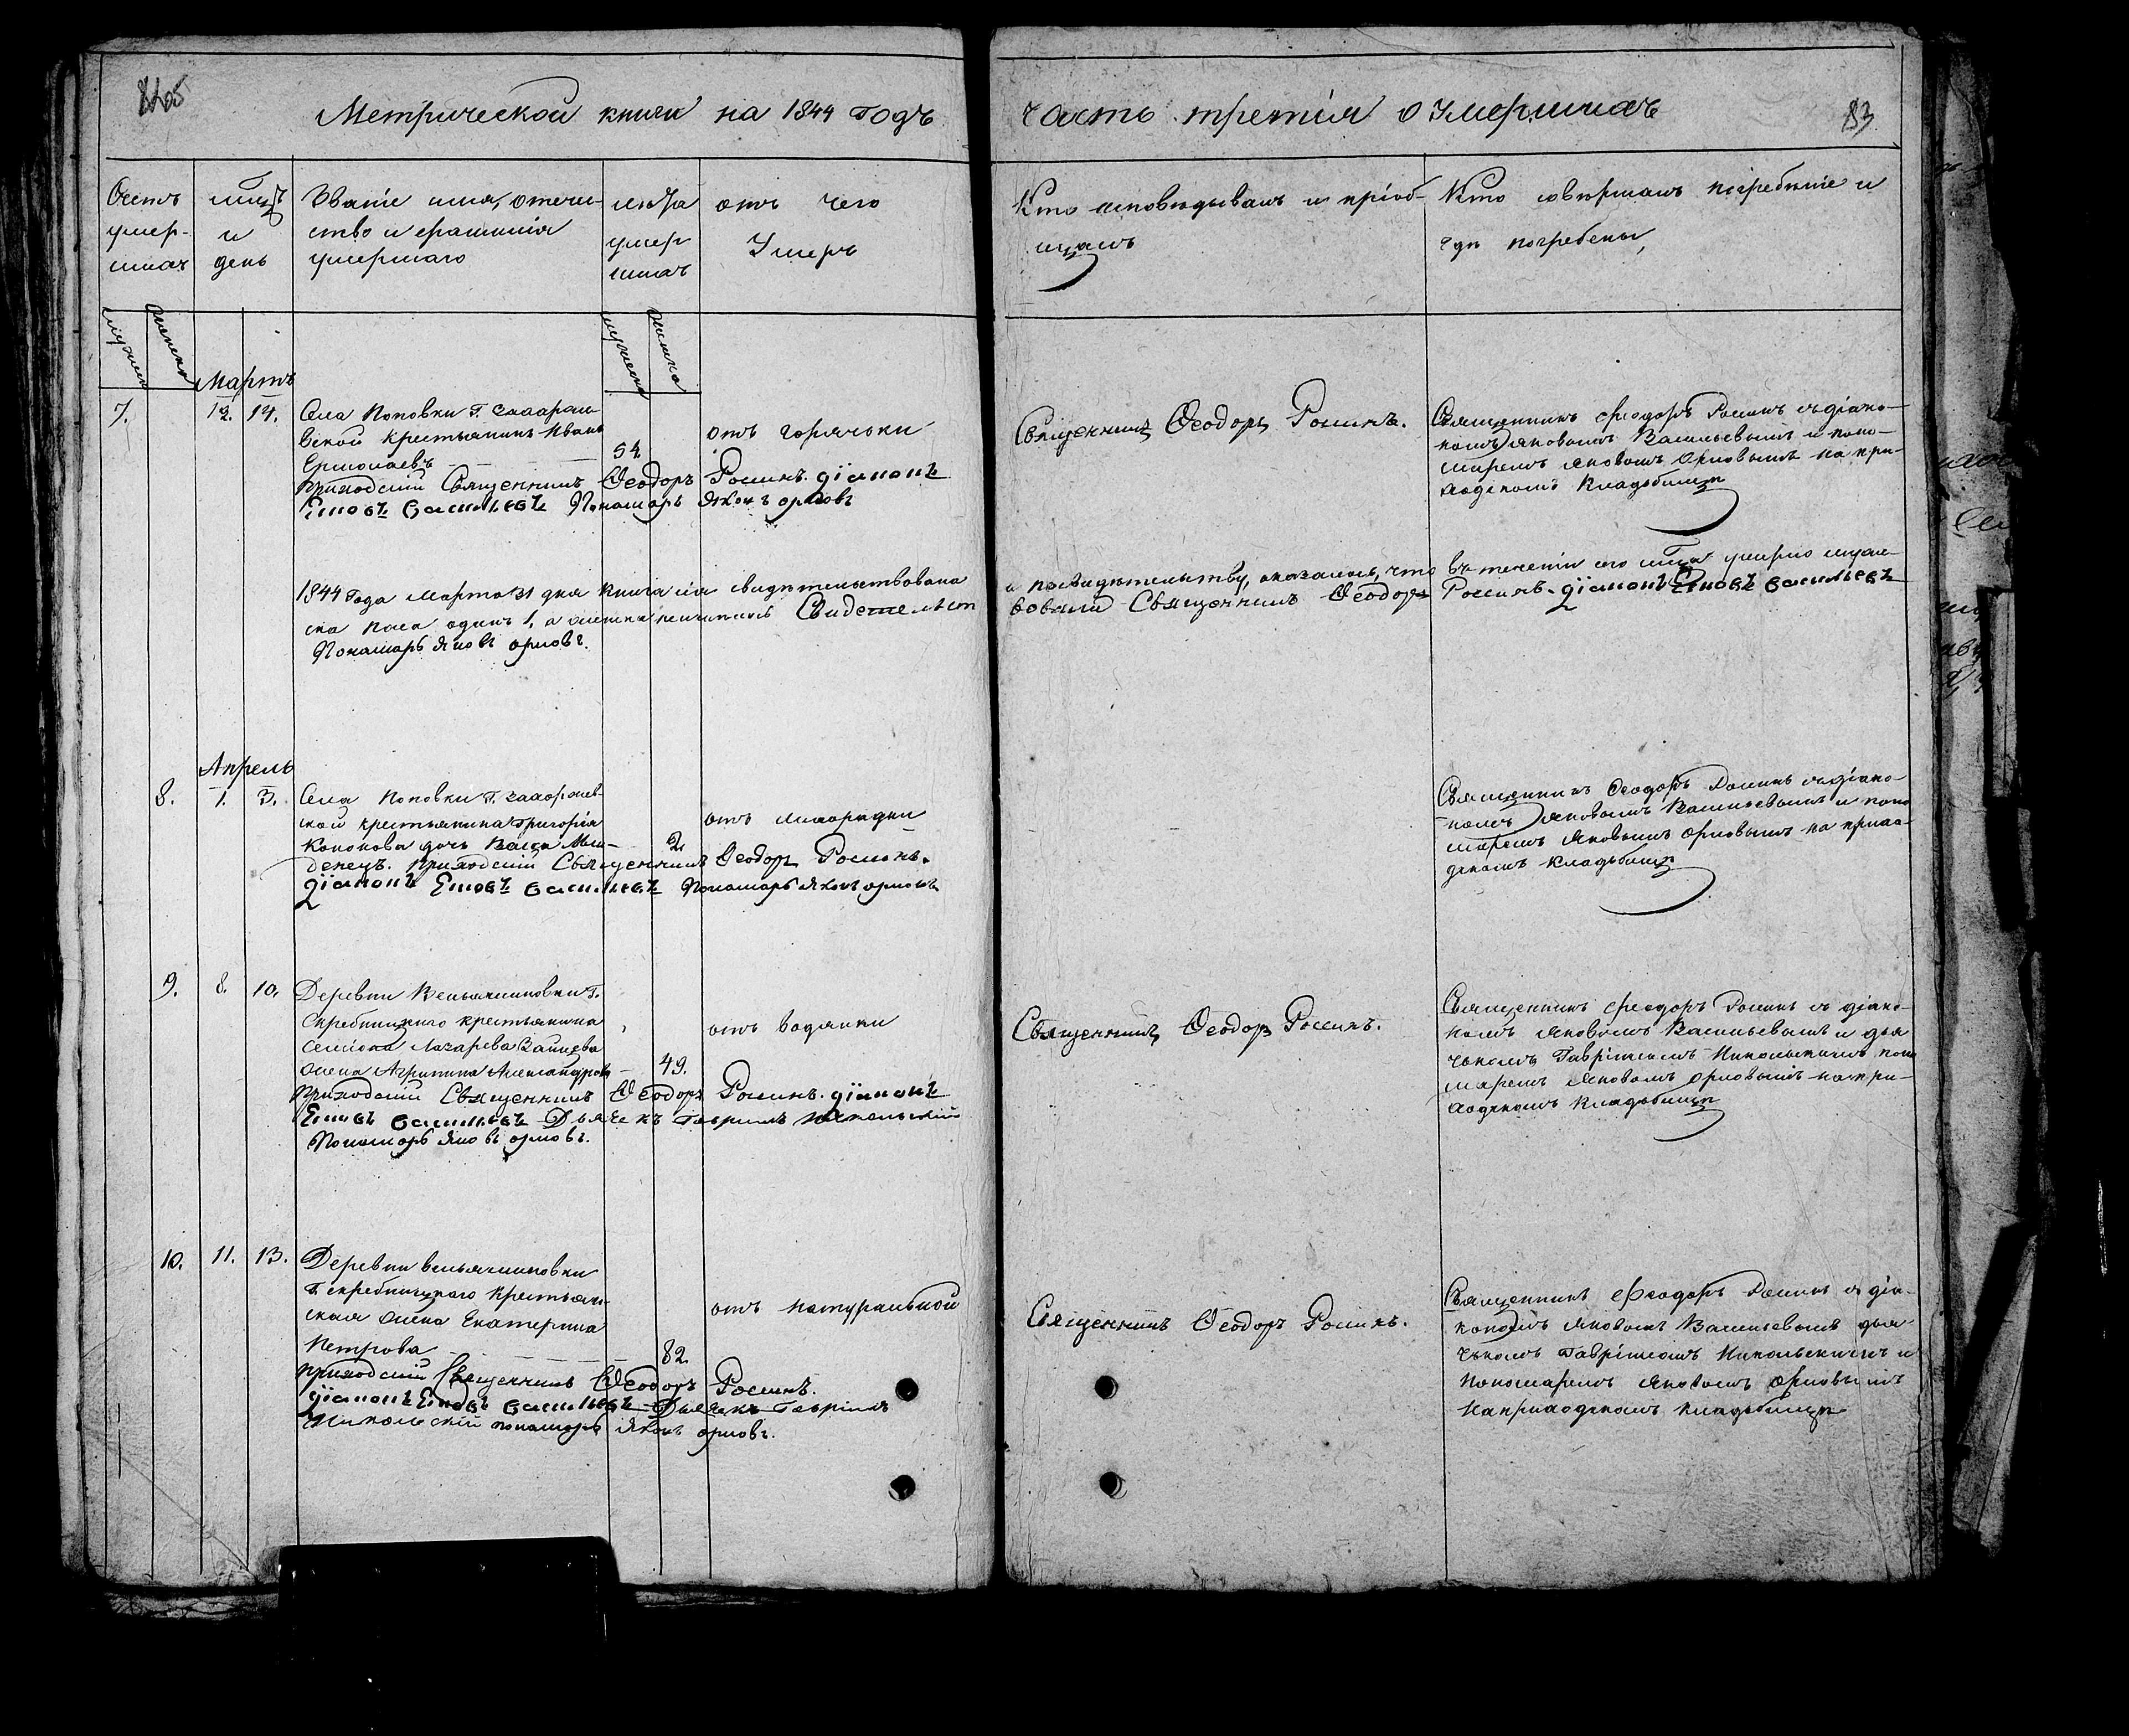 Метрической книги на 1844 годъ
часть третія о умершихъ
83
Счетъ умер- шихъ
мцъ и день
Званіе имя, отече- ство и фамилія умершаго
лѣта умер шихъ
отъ чего умеръ
Кто исповѣдывалъ и пріоб- щалъ
Кто совершалъ погребеніе и гдѣ погребены,
мужеска
женска
мужеска
женска
Мартъ
7. 12. 14.
Села Поповки Г.
вской крестьянинъ Иванъ
Ермолаевъ
54.
отъ горячьки
Приходскій Священникъ Ѳеодоръ Росинъ. діаконъ
Яковъ васильевъ Пономарь Яковъ орловъ
Священникъ Ѳеодоръ Росинъ.
Священникъ Ѳеодоръ Росинъ съ діако-
номъ Яковомъ Васильевымъ и поно-
маремъ Яковомъ Орловымъ на при-
ходскомъ кладьбищѣ
1844 года марта 31 дня книга сія свидѣтельствована
и по свидѣтельству, оказалось, что въ теченіи сего мца умерло мужес-
ска пола одинъ 1, а женска Свидетельст
вовали Священникъ Ѳеодоръ Росинъ. діаконъ Яковъ васильевъ
Пономарь Яковъ орловъ.
Апрель
8. 1. 3.
Села Поповки Г.
ской крестьянина Григорія
Кононова дочь Васса Мла-
денецъ. Приходскій Священникъ Ѳеодоръ Росинъ.
2.
отъ лихорадки
діаконъ Яковъ васильевъ Пономарь Яковъ орловъ
Священникъ Ѳеодоръ Росинъ съ діако-
номъ Яковомъ Васильевымъ и поно
маремъ Яковымъ Орловымъ на прихо-
дскомъ кладьбищѣ
9. 8. 10.
Деревни Веньяминовки Г.
Скребницкаго крестьянина
Семіона Лазарева Зайцева
жена Агрипина Александрова
49.
отъ водянки
Приходскій Священникъ Ѳеодоръ Росинъ. діаконъ
Яковъ васильевъ Дьячекъ Гаврилъ Никольскій
Пономарь Яковъ орловъ.
Священникъ Ѳеодоръ Росинъ.
Священникъ Ѳеодоръ Росинъ съ діако-
номъ Яковомъ Васильевымъ и дья
чькомъ Гавріиломъ Никольскимъ поно
маремъ Яковомъ Орловымъ на при-
ходскомъ кладьбищѣ
10. 11. 13.
Деревни веньяминовки
Г. скребницкаго крестьян-
ская жена Екатерина
Петрова
82.
отъ натуральной
приходскій Священникъ Ѳеодоръ Росинъ.
діаконъ Яковъ васильевъ Дьячекъ Гаврилъ
Никольскій пономарь Яковъ орловъ.
Священникъ Ѳеодоръ Росинъ.
Священникъ Ѳеодоръ Росинъ съ діа-
кономъ Яковомъ Васильевымъ дья-
чькомъ Гавріиломъ Никольскимъ и
пономаремъ Яковомъ Орловымъ
на приходскомъ кладьбищѣ